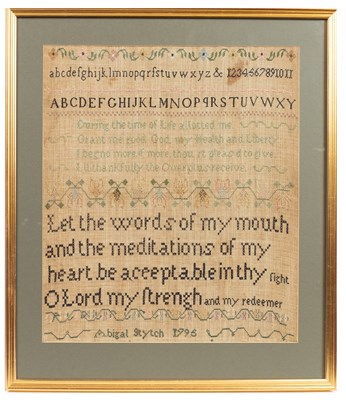 abcdefghijklmnopqrſstuvwxyz & 1234567891011
ABCDEFGHIJKLMNOPQRSTUVWXY
During the time of Life allotted me
Grant me good God, my Health and Liberty
I beg no more if more thou rt pleasd to give
I ll thankfully the Overplus receive
Let the words of my mouth
and the meditations of my
heart be acceptable in thy ſight
O Lord my ſtrengh and my redeemer
Abigal Stytch 1796